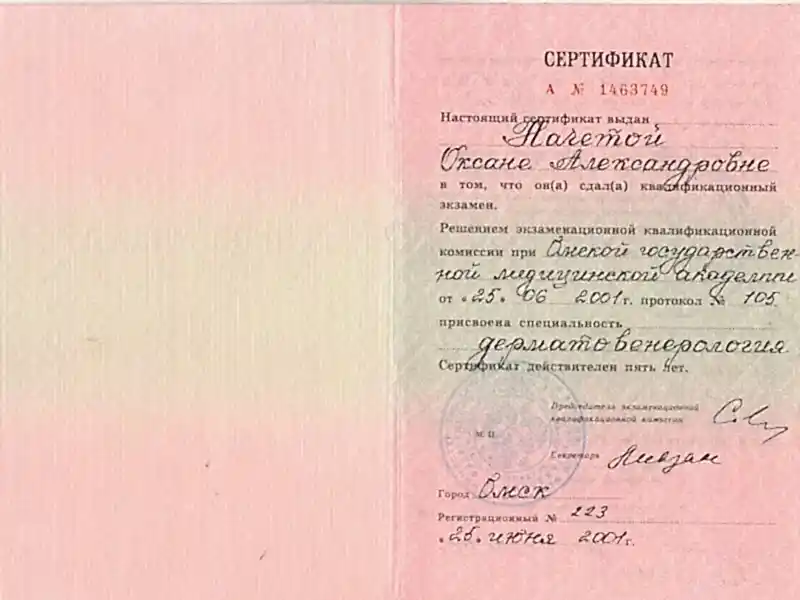 СЕРТИФИКАТ
А № 1463749
Настоящий сертификат выдан
Начетой
Оксане Александровне
в том, что он(а) сдал(а) квалификационный
экзамен.
Решением экзаменационной квалификационной
комиссии при Омской государствен-
ной медицинской академии
от «25» 06 2001 г. протокол № 105
присвоена специальность
дерматовенерология
Сертификат действителен пять лет.
Председатель экзаменационной
квалификационной комиссии
М П
Секретарь
Город Омск
Регистрационный № 223
«25» июня 2001 г.